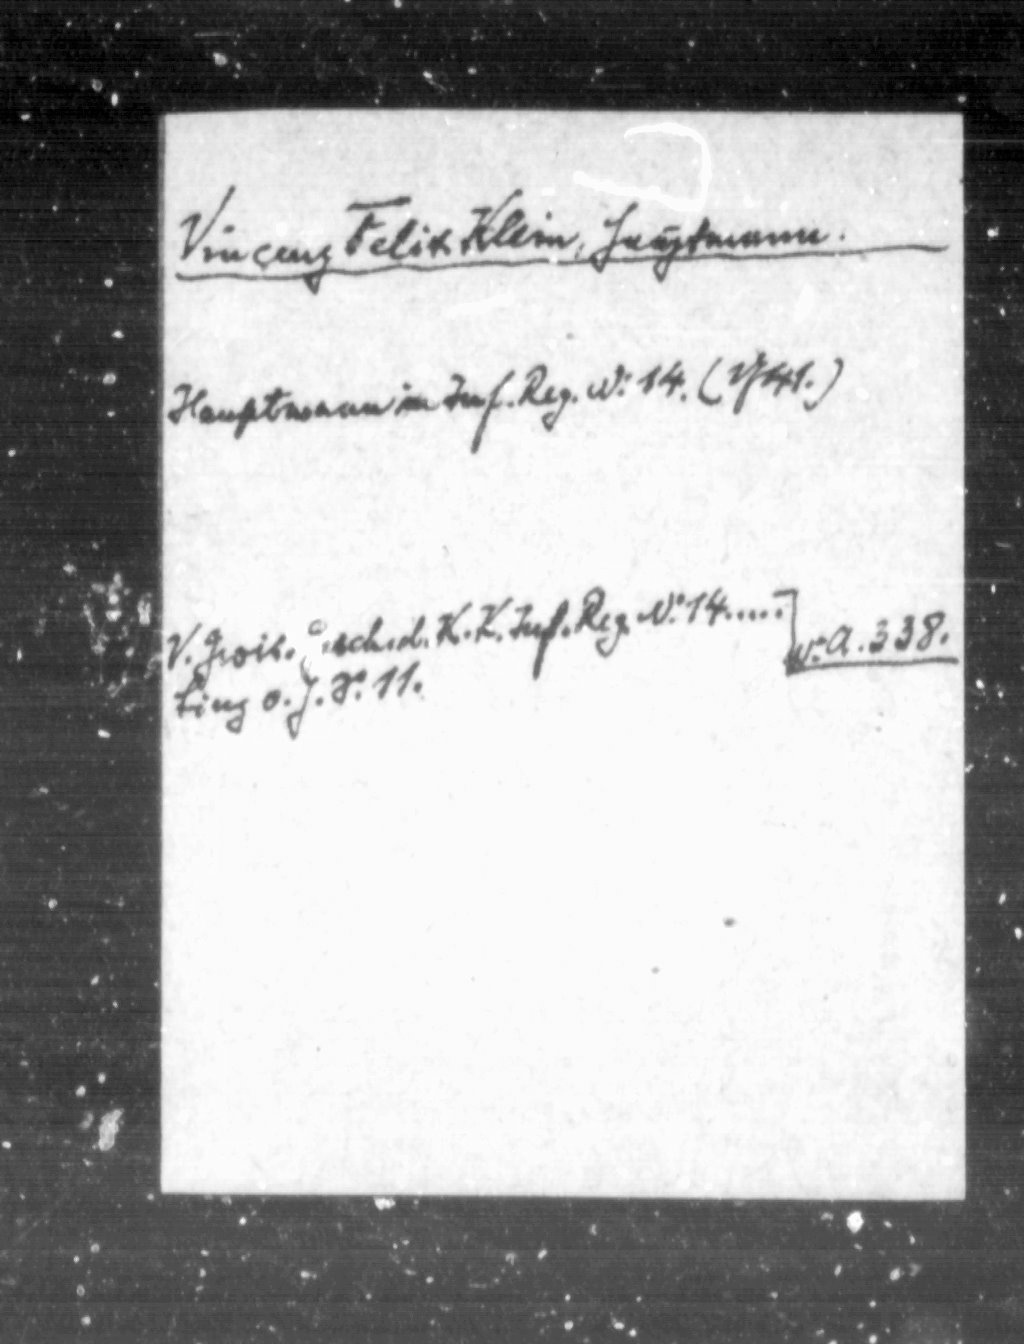 Vincenz Felix Klein, Hauptmann.
Hauptmann in Inf. Reg. No: 14. (1741.)
V. Grois. Gesch. d. K. K. Inf. Reg. No. 14.....
Linz o. J. S. 11.
No: A. 338.